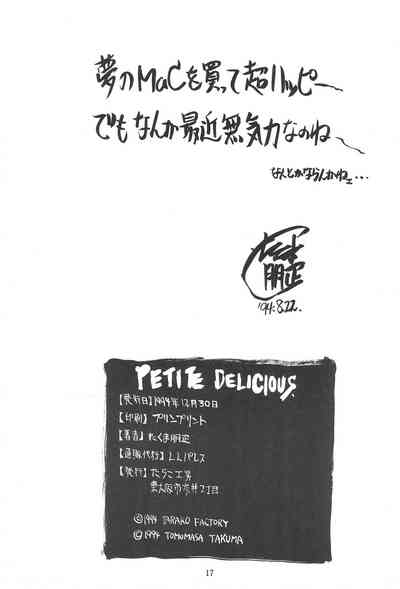 夢のMacを買って超ハッピー〜
でもなんか最近無気力なのね〜
なんとかならんかねェ・・・
たくま
朋正
'94.8.22.
PETITE DELICIOUS.
【発行日】1994年12月30日
【印刷】プリンプリント
【著者】たくま朋正
【通販代行】LLパレス
【発行】たらこ工房
東大阪市 2丁目
©1994 TARAKO FACTORY
©1994 TOMOMASA TAKUMA
17